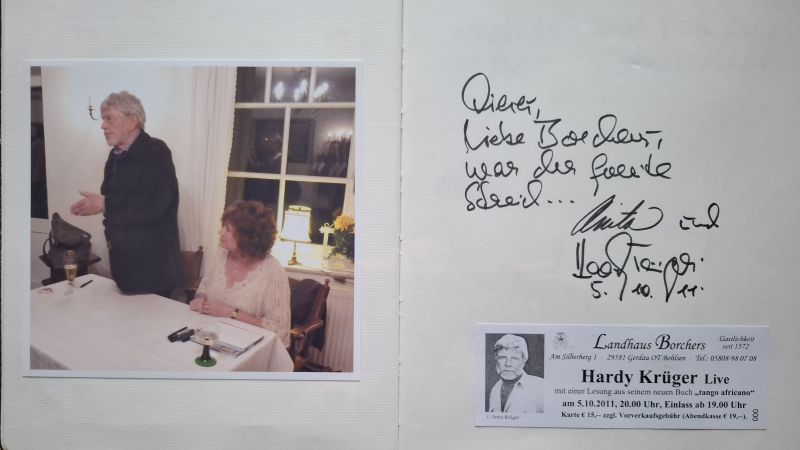 Dieses,
liebe Borchers,
war der zweite
Streich...
Anita und
Hardy Krüger
5. 10. 11.
Landhaus Borchers
Gastlichkeit
seit 1572
Am Silberberg 1 - 29581 Gerdau OT-Bohlsen - Tel: 05808-98 07 08
Hardy Krüger Live
mit einer Lesung aus seinem neuen Buch „tango africano“
am 5.10.2011, 20.00 Uhr, Einlass ab 19.00 Uhr
Karte € 15,-- zzgl. Vorverkaufsgebühr (Abendkasse € 19,--).
© Anita Krüger
000